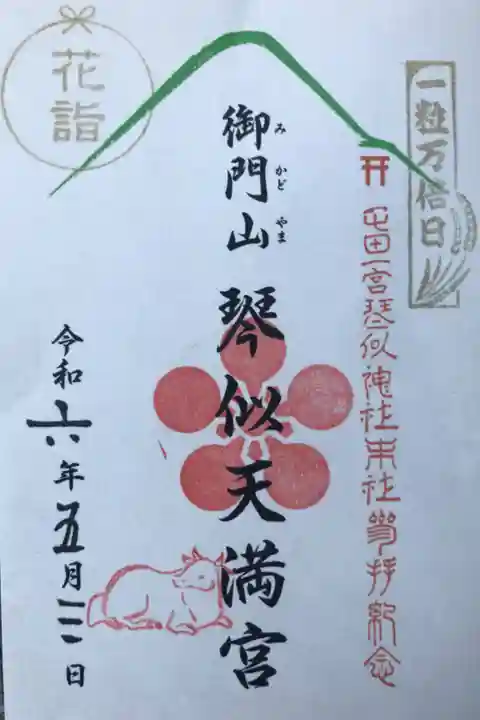 一粒万倍日
屯田一宮琴似神社末社參拝紀念
御門山
みかどやま
琴似天満宮
花詣
令和六年五月三日